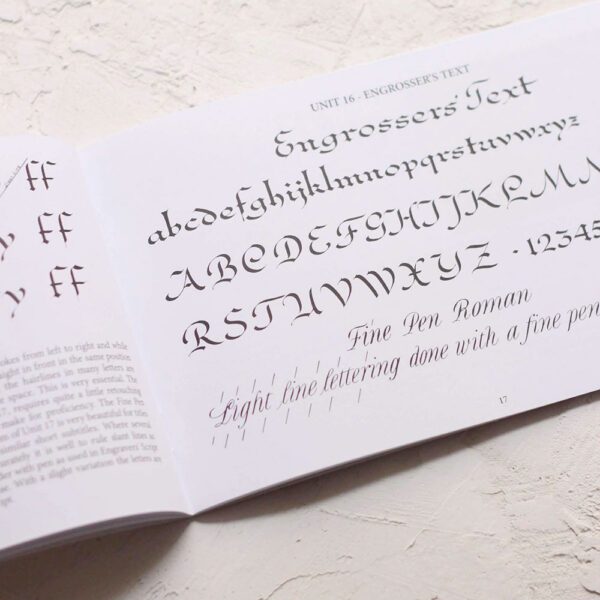 ff
y ff
y ff
okes from left to right and while
aight in front in the same position
the hairlines in many letters are
space. This is very essential. The
17, requires quite a little retouching
make for proficiency. The Fine Pen
n of Unit 17 is very beautiful for titles
similar short subtitles. Where several
urately it is well to rule slant lines as
der with pen as used in Engravers Script
se. With a slight variation the letters are
ript.
UNIT 16 - ENGROSSER'S TEXT
Engrossers' Text
abcdefghijklmnopqrstuvwxyz
ABCDEFGHIJKLMN
RSTUVWXYZ - 12345
Fine Pen Roman
Light line lettering done with a fine pen
17